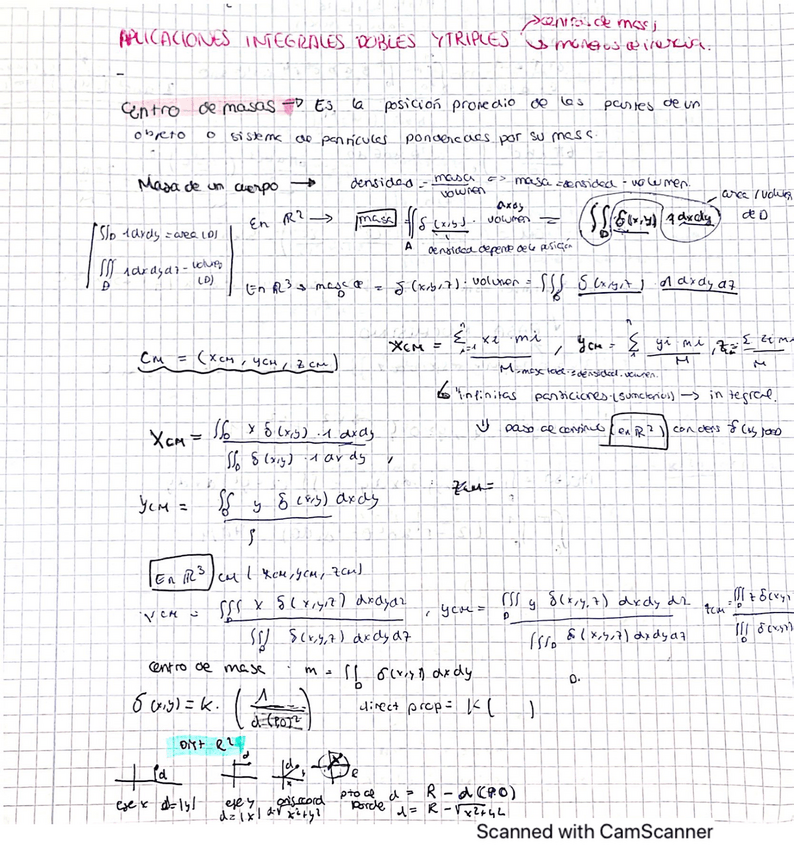 APLICACIONES INTEGRALES DOBLES Y TRIPLES → centros de masas
↳ momentos de inercia.
Centro de masas → Es la posición promedio de las partes de un
objeto o sistema de partículas ponderadas por su masa.
Masa de un cuerpo → densidad = masa/volumen => masa = densidad · volumen.
∬_D 1dxdy = area (D)
∭_D 1dxdydz = volumen (D)
En R² → masa ∬_A δ(x,y) · volumen = ∬_D δ(x,y) 1dxdy
dxdy
area / volumen de D
densidad depende de la posición
En R³ → masa de D = δ(x,y,z) · volumen = ∭_D δ(x,y,z) · 1 dxdydz
CM = (xCM, yCM, zCM)
XCM = Σ xi · mi / M, yCM = Σ yi · mi / M, z = Σ zi mi / M
M = masa total = densidad · volumen.
↳ infinitas particiones (sumatorios) → integral.
↓ paso de continuo (en R²) con dens δ(x,y)
XCM = ∬_D x δ(x,y) · 1 dxdy / ∬_D δ(x,y) · 1 dxdy ,
yCM = ∬_D y δ(x,y) dxdy / ∫
zCM =
En R³ CM (xCM, yCM, zCM)
XCM = ∭ x δ(x,y,z) dxdydz / ∭_D δ(x,y,z) dxdydz , yCM = ∭_D y δ(x,y,z) dxdydz / ∭_D δ(x,y,z) dxdydz zCM = ∭_D z δ(x,y / ∭ δ(x,y,z)
centro de masa : m = ∬_D δ(x,y) dxdy
D.
δ(x,y) = k · (1 / d(P,O)²) direct prop = K ( )
Dist R²
d d d x R
eje x d=|y| eje y d=|x| d=√x²+y² pto de borde d = R - d(P,O)
d = R - √x²+y²
Scanned with CamScanner